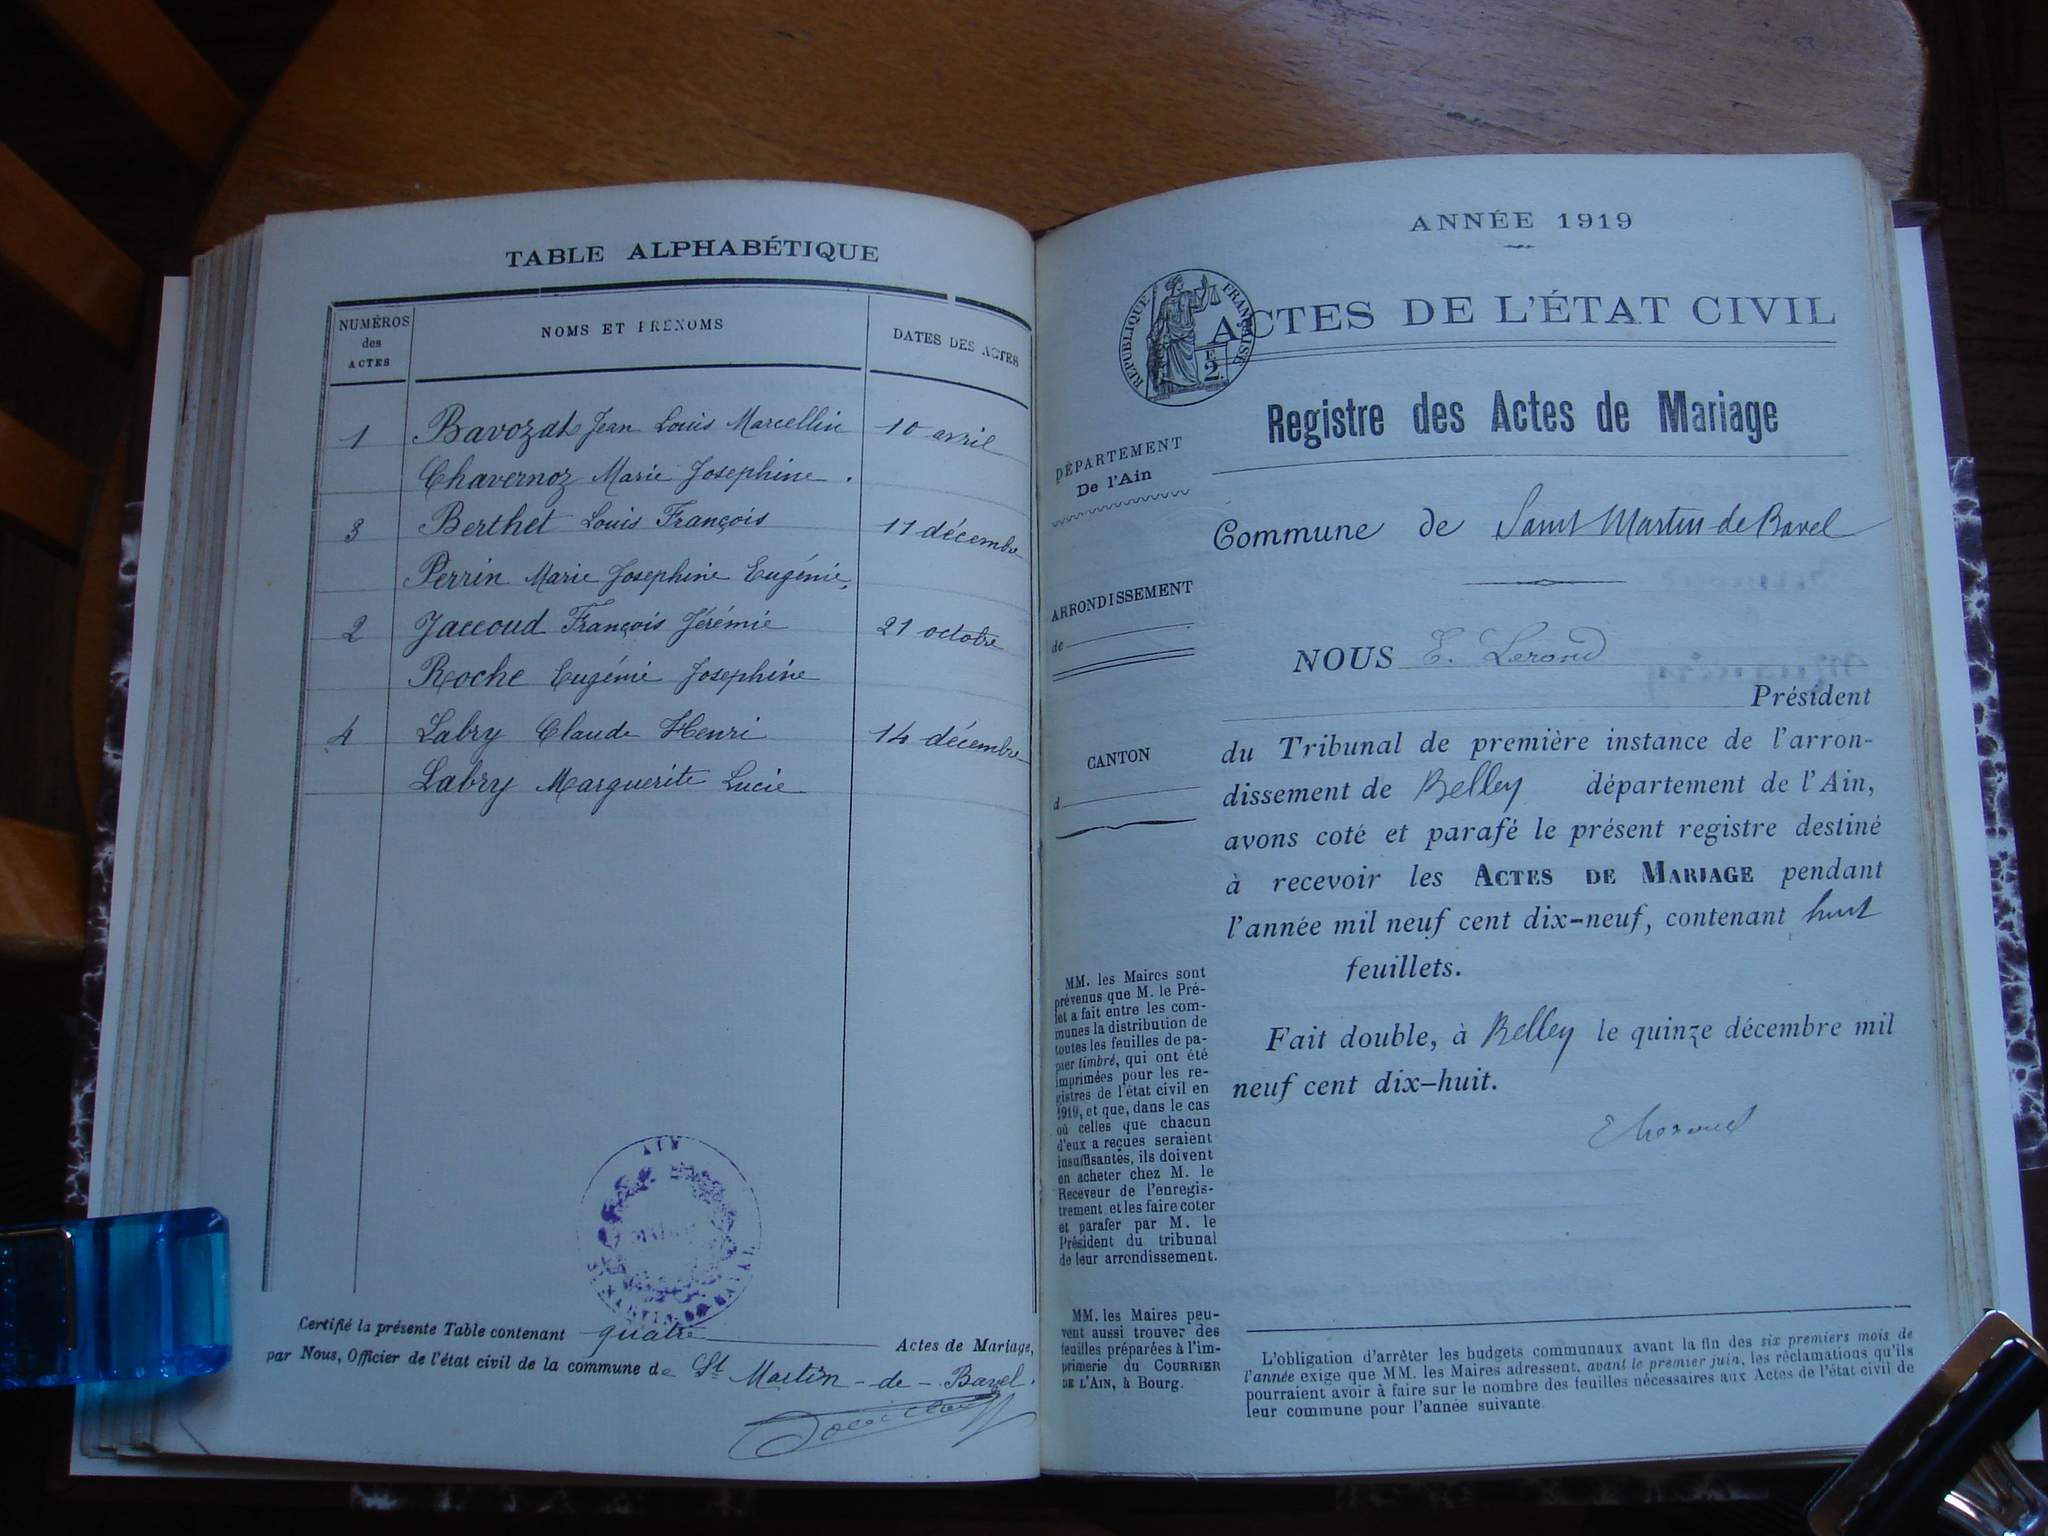 TABLE ALPHABÉTIQUE
NUMÉROS des ACTES NOMS ET PRÉNOMS DATES DES ACTES
1 Bavozat Jean Louis Marcellin 10 avril
Chavernoz Marie Josephine.
3 Berthet Louis François 11 décembre
Perrin Marie Josephine Eugénie,
2 Jaccoud François Jérémie 21 octobre
Roche Eugénie Josephine
4 Labry Claude Henri 14 décembre
Labry Marguerite Lucie
AIN
Certifié la présente Table contenant quatre Actes de Mariage,
par Nous, Officier de l'état civil de la commune de St Martin-de-Bavel.
ANNÉE 1919
RÉPUBLIQUE FRANÇAISE
E 2.
ACTES DE L'ÉTAT CIVIL
Registre des Actes de Mariage
DÉPARTEMENT
De l'Ain
Commune de Saint Martin de Bavel
ARRONDISSEMENT
de
NOUS E. Lerond
Président
CANTON
d
du Tribunal de première instance de l'arron-
dissement de Belley département de l'Ain,
avons coté et parafé le présent registre destiné
à recevoir les ACTES DE MARIAGE pendant
l'année mil neuf cent dix-neuf, contenant huit
feuillets.
Fait double, à Belley le quinze décembre mil
neuf cent dix-huit.
MM. les Maires sont
prévenus que M. le Pré-
fet a fait entre les com-
munes la distribution de
toutes les feuilles de pa-
pier timbré, qui ont été
imprimées pour les re-
gistres de l'état civil en
1919, et que, dans le cas
où celles que chacun
d'eux a reçues seraient
insuffisantes, ils doivent
en acheter chez M. le
Receveur de l'enregis-
trement, et les faire coter
et parafer par M. le
Président du tribunal
de leur arrondissement.
MM. les Maires peu-
vent aussi trouver des
feuilles préparées à l'im-
primerie du COURRIER
DE L'AIN, à Bourg.
L'obligation d'arrêter les budgets communaux avant la fin des six premiers mois de
l'année exige que MM. les Maires adressent, avant le premier juin, les réclamations qu'ils
pourraient avoir à faire sur le nombre des feuilles nécessaires aux Actes de l'état civil de
leur commune pour l'année suivante.